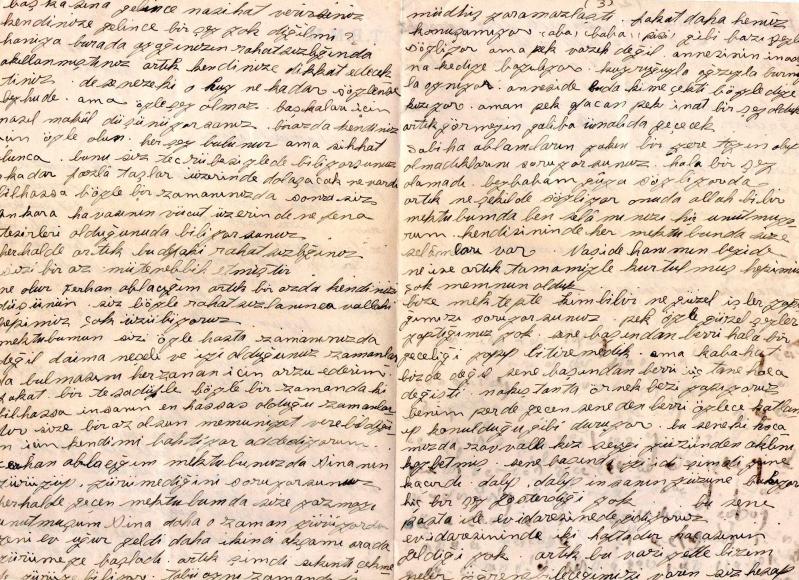 başkasına gelince nasihat verirsiniz
kendinize gelince bir şey yok değilmi
hanıya burada ayağınızın rahatsızlığında
akıllanmıştınız artık kendinize dikkat edecek
tiniz. desenizeki o huy ne kadar söylense
beyhude. ama öyle şey olmaz. başkaları için
nasıl makul düşünüyorsanız. birazda kendiniz
için öyle olun. her şey bulunur ama sıhhat
bunu siz tecrübesiylede biliyorsunuz
okadar fazla taşlar üzerinde dolaşacak ne vardı
bilhassa böyle bir zamanınızda sonra siz
ankara havasının vücut üzerinde ne fena
tesirleri olduğunuda biliyorsunuz
herhalde artık budşaki rahatsızlığınız
sizi biraz mütenebbih etmiştir
ne olur Perhan ablacığım artık birazda kendinizi
düşünün siz böyle rahatsızlanınca vallahi
hepimiz çok üzülüyoruz
mektubumun sizi öyle hasta zamanınızda
değil daima neşeli ve iyi olduğunuz zamanlar
da bulmasını her zaman için arzu ederim.
fakat bir tesadüfle böyle bir zamanda ki
bilhassa insanın en hassas olduğu zamanlar
dır size biraz olsun memnuniyet verebildiği
için kendimi bahtiyar addediyorum.
Perhan ablacığım mektubunuzda Nina nın
yürüyüp, yürümediğini soruyorsunuz
herhalde geçen mektubumda size yazmayı
unutmuşum Nina daha o zaman yürüyordu
yeni ev uğur geldi daha ikinci akşamı orada
yürümeye başladı. artık şimdi sıkıntı çekme
3
müdhiş yaramazlaştı. fakat daha henüz
konuşamıyor (aba) baba (pisi) gibi bazı şeyler
söylüyor ama pek yazık değil annesinin inadı
na kediye bayılıyor. kuyruğuyla ağzıyla burnuy
la oynuyor. annesi de buda kime çekti böyle diye
kızıyor. aman pek yacan pek inat bir şey oldu
artık görmeyin galiba ünalıda geçecek
Sabiha ablamların yakın bir yere tayin olup
olmadıklarını soruyorsunuz. hala bir şey
olamadı. beybabam güya söylüyorda
artık ne şekilde söylüyor onuda allah bilir
mektubumda ben selâmınızı hiç unutmuyo
rum. kendisininde her mektubunda size
selâmları var Vaside hanımın beyide
ne ise artık tamamiyle kurtulmuş hepimiz
çok memnun olduk
bize mektepte kimbilir ne güzel işler yap
tığımızı soruyorsunuz. pek öyle güzel şeyler
yaptığımız yok. sene başından berri hala bir
geceliği yapıp bitiremedik. ama kabahat
bizde değil sene başından berri üç tane hoca
değişti. nakıştanda örnek bezi yapıyoruz
benim perde geçen seneden berri öylece katlan
ıp konulduğu gibi duruyor. bu seneki hoca
mızda zavvallı kız sevgi yüzünden aklını
kaybetmiş. sene başında iyi idi şimdi gene
kaçırdı dalıp, dalıp insanın yüzüne bakıyor
hiç bir şey gösterdiği yok bu sene
pasta ile ev idaresinede gidiyoruz
ev idaresinede iki haftadır hocasının
geldiği yok artık bu vaziyette bizim
neler öğrenebileceğimizi varın siz hesap